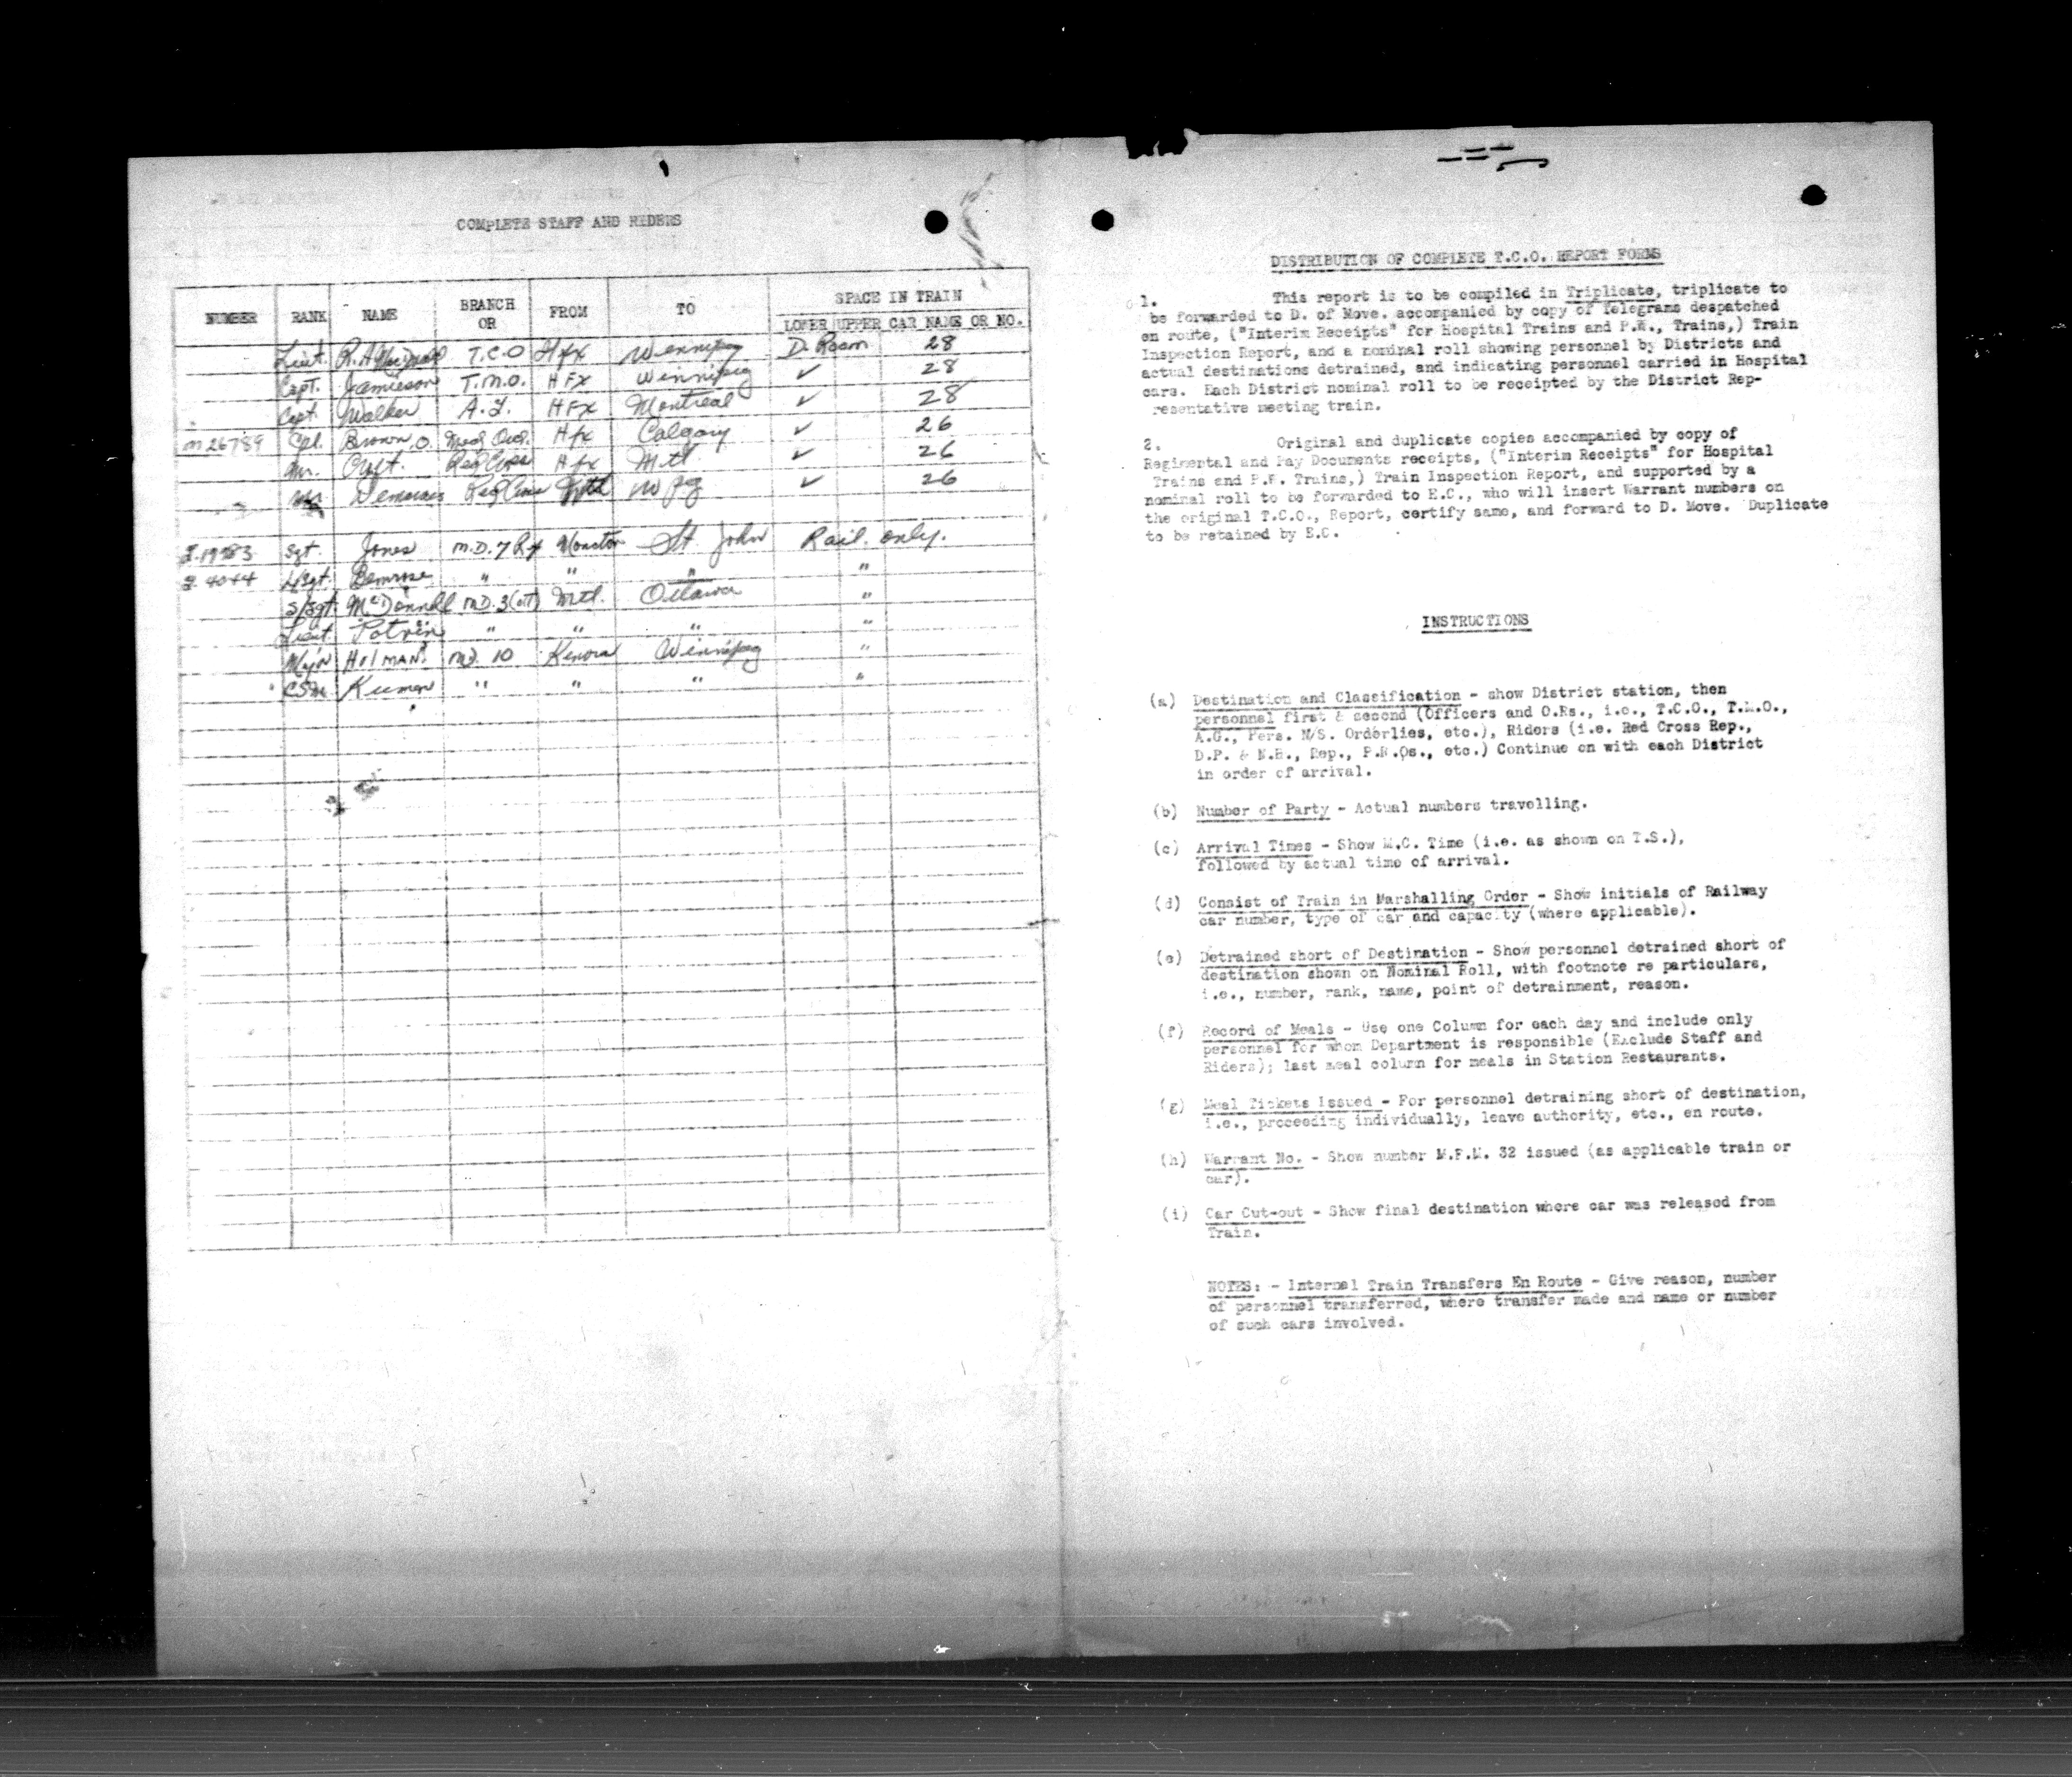 COMPLETE STAFF AND RIDERS
NUMBER RANK NAME BRANCH OR FROM TO SPACE IN TRAIN
LOWER UPPER CAR NAME OR NO.
Lieut. R. A. T.C.O Hfx Winnipeg D. Room 28
Capt. Jamieson T.M.O. HFx Winnipeg ✓ 28
Capt. Walker A.G. HFx Montreal ✓ 28
M 26789 Cpl. Brown, O. Med Ord. Hfx Calgary ✓ 26
Mr. Red Cross Hfx Mtl ✓ 26
Mr. Red Cross Mtl Wpeg ✓ 26
Sgt. Jones M.D. 7 Moncton St John Rail. only.
4044 Bemrose " " " "
S/Sgt McDonnell M.D. 3 Mtl. Ottawa "
Lieut. Potvin " " " "
Major HOLMAN. MD. 10 Kenora Winnipeg "
CSM. Keeman " " " "
DISTRIBUTION OF COMPLETE T.C.O. REPORT FORMS
1. This report is to be compiled in Triplicate, triplicate to
be forwarded to D. of Move. accompanied by copy of Telegrams despatched
en route, ("Interim Receipts" for Hospital Trains and P.W., Trains,) Train
Inspection Report, and a nominal roll showing personnel by Districts and
actual destinations detrained, and indicating personnel carried in Hospital
cars. Each District nominal roll to be receipted by the District Rep-
resentative meeting train.
2. Original and duplicate copies accompanied by copy of
Regimental and Pay Documents receipts, ("Interim Receipts" for Hospital
Trains and P.W. Trains,) Train Inspection Report, and supported by a
nominal roll to be forwarded to E.C., who will insert Warrant numbers on
the original T.C.O., Report, certify same, and forward to D. Move. Duplicate
to be retained by E.C.
INSTRUCTIONS
(a) Destination and Classification - show District station, then
personnel first & second (Officers and O.Rs., i.e., T.C.O., T.M.O.,
A.G., Pers. N/S. Orderlies, etc.), Riders (i.e. Red Cross Rep.,
D.P. & N.H., Rep., P.R.Os., etc.) Continue on with each District
in order of arrival.
(b) Number of Party - Actual numbers travelling.
(c) Arrival Times - Show M.C. Time (i.e. as shown on T.S.),
followed by actual time of arrival.
(d) Consist of Train in Marshalling Order - Show initials of Railway
car number, type of car and capacity (where applicable).
(e) Detrained short of Destination - Show personnel detrained short of
destination shown on Nominal Roll, with footnote re particulars,
i.e., number, rank, name, point of detrainment, reason.
(f) Record of Meals - Use one Column for each day and include only
personnel for whom Department is responsible (Exclude Staff and
Riders); last meal column for meals in Station Restaurants.
(g) Meal Tickets Issued - For personnel detraining short of destination,
i.e., proceeding individually, leave authority, etc., en route.
(h) Warrant No. - Show number M.F.M. 32 issued (as applicable train or
car).
(i) Car Cut-out - Show final destination where car was released from
Train.
NOTES: - Internel Train Transfers En Route - Give reason, number
of personnel transferred, where transfer made and name or number
of such cars involved.